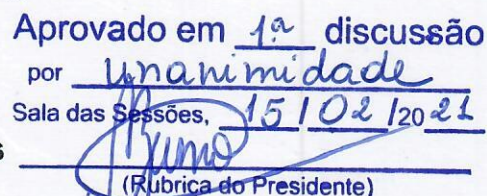 Aprovado em 1ª discussão
por unanimidade
Sala das Sessões, 15/02/2021
s
(Rubrica do Presidente)